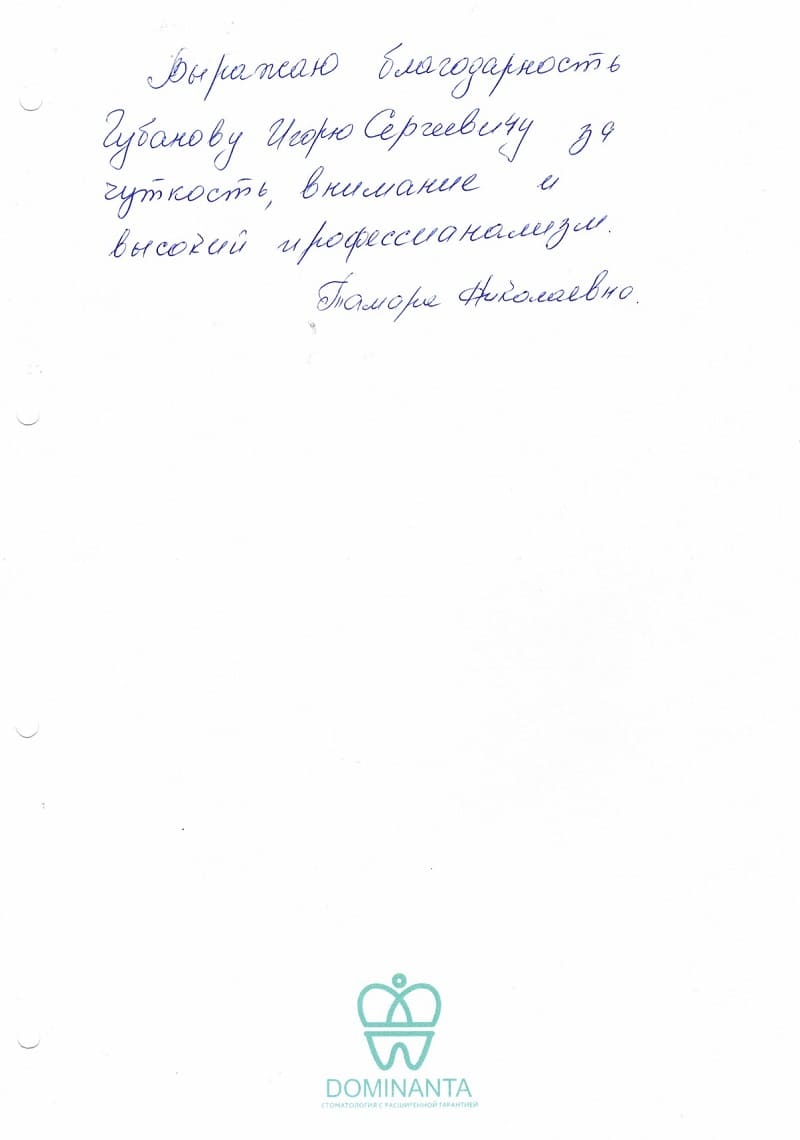 Выражаю благодарность
Губанову Игорю Сергеевичу за
чуткость, внимание и
высокий профессианализм.
Тамара Николаевна.
DOMINANTA
СТОМАТОЛОГИЯ С РАСШИРЕННОЙ ГАРАНТИЕЙ